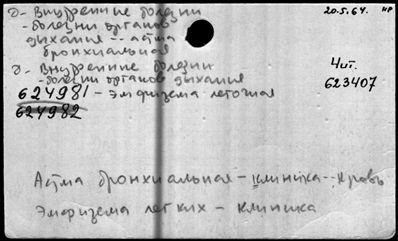 д - Внутренние болезни
- болезни органов
дыхания -- астма
бронхиальная
д - Внутренние болезни
- болезни органов дыхания
624981 - эмфизема легочная
624982
20.5.64. НР
Чит.
623407
Астма бронхиальная - клиника -- кровь
Эмфизема легких - клиника